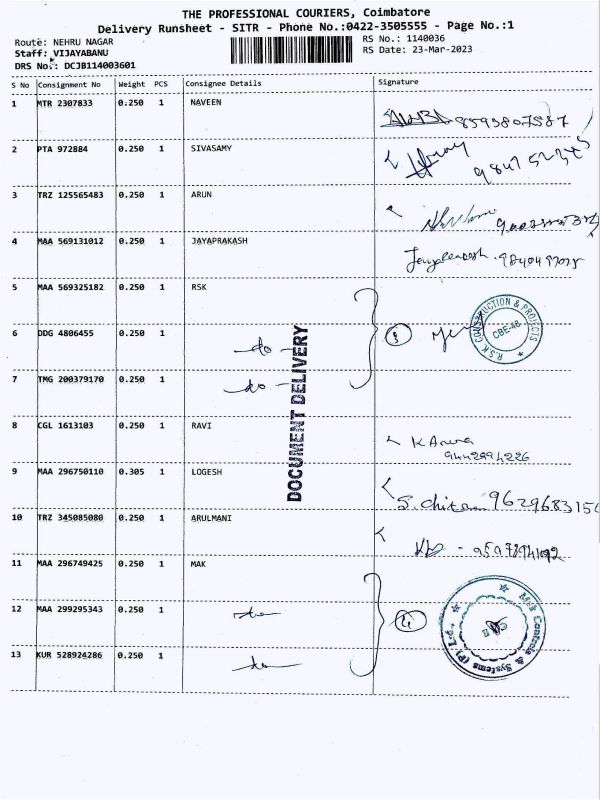 THE PROFESSIONAL COURIERS, Coimbatore
Delivery Runsheet - SITR - Phone No.:0422-3505555 - Page No.:1
Route: NEHRU NAGAR
RS No.: 1140036
Staff: VIJAYABANU
RS Date: 23-Mar-2023
DRS No.: DCJB114003601
S No Consignment No Weight PCS Consignee Details Signature
1 MTR 2307833 0.250 1 NAVEEN
8593807587
2 PTA 972884 0.250 1 SIVASAMY
3 TRZ 125565483 0.250 1 ARUN
4 MAA 569131012 0.250 1 JAYAPRAKASH
5 MAA 569325182 0.250 1 RSK
R.S.K CONSTRUCTION & PROJECTS
CBE-48
6 DDG 4806455 0.250 1 -do- 3
7 TMG 200379170 0.250 1 -do-
DOCUMENT DELIVERY
8 CGL 1613103 0.250 1 RAVI
9442994226
9 MAA 296750110 0.305 1 LOGESH
S. Chitra 9629683150
10 TRZ 345085080 0.250 1 ARULMANI
11 MAA 296749425 0.250 1 MAK
Mak Controls & Systems (P) Ltd.
12 MAA 299295343 0.250 1 -do-
13 KUR 528924286 0.250 1 -do-